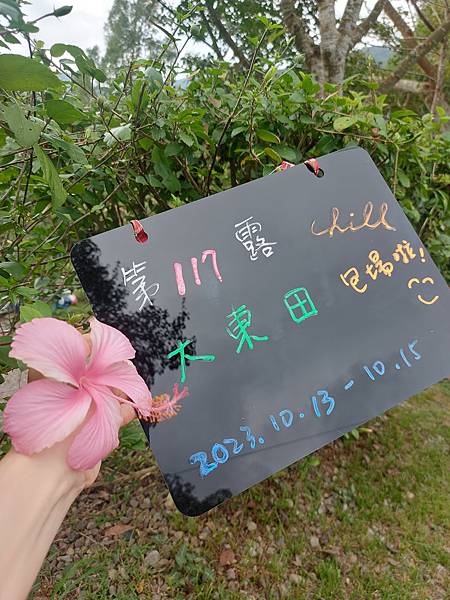 第117露 chill
大東田 包場啦!
2023.10.13-10.15